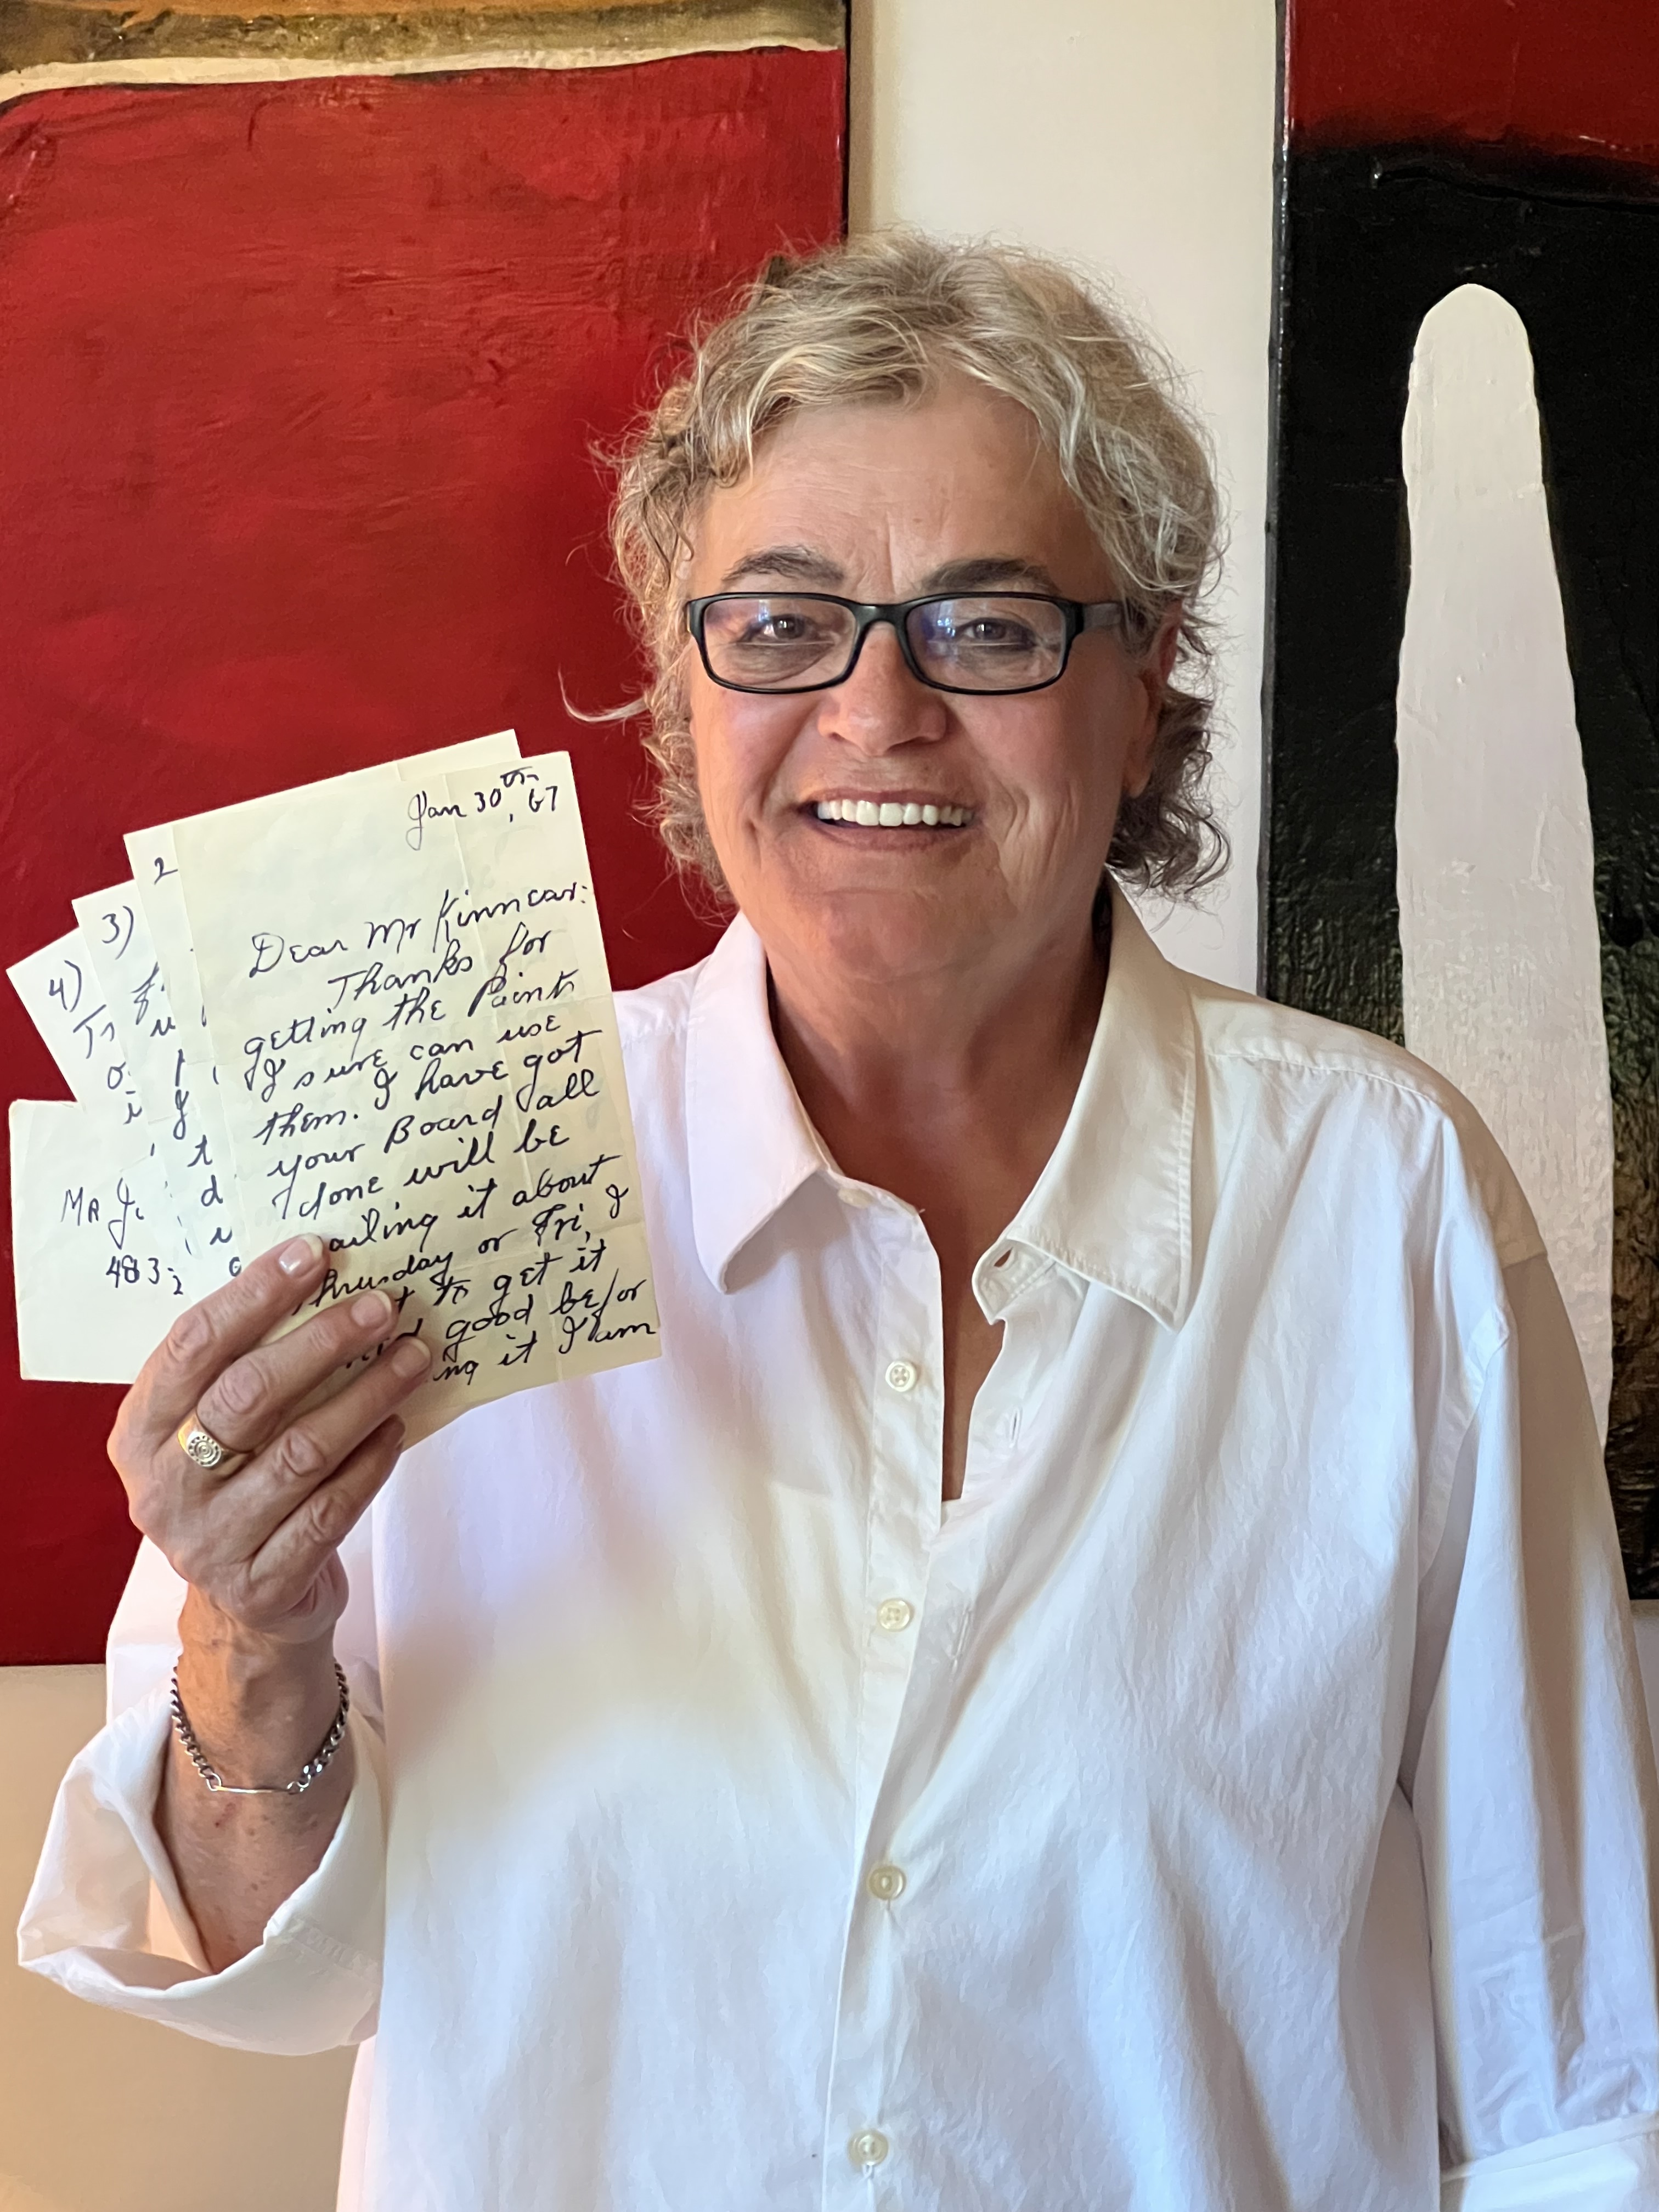 Jan 30th, 67
Dear Mr Kinnear:
Thanks for
getting the Paints
I sure can use
them. I have got
your Board all
done will be
ailing it about
hursday or Fri, I
t to get it
good befor
ng it I am
2
3)
4)
Mr J.
483